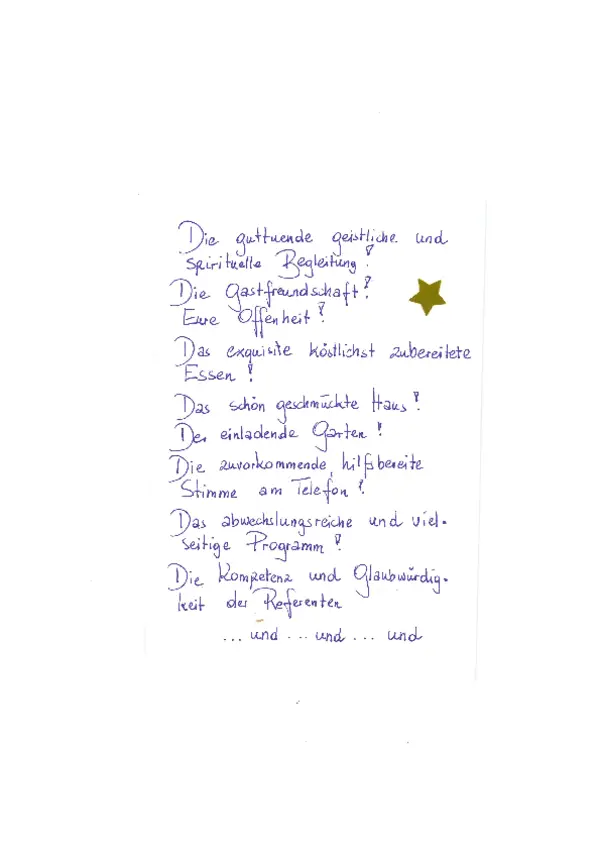 Die guttuende geistliche und
spirituelle Begleitung!
Die Gastfreundschaft!
Eure Offenheit!
Das exquisite köstlichst zubereitete
Essen!
Das schön geschmückte Haus!
Der einladende Garten!
Die zuvorkommende, hilfsbereite
Stimme am Telefon!
Das abwechslungsreiche und viel-
seitige Programm!
Die Kompetenz und Glaubwürdig-
keit der Referenten
... und ... und ... und